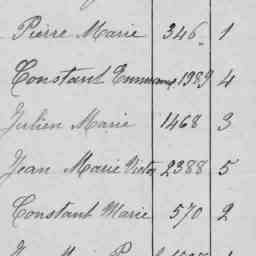 Pierre Marie 346 1
Constant Emmanuel 1989 4
Julien Marie 1468 3
Jean Marie Victor 2388 5
Constant Marie 570 2